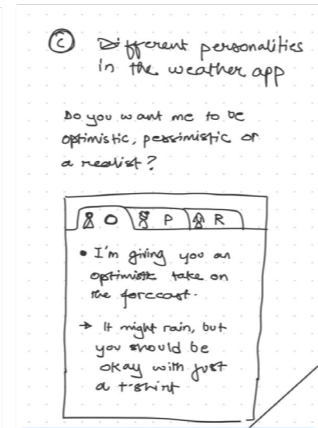 C Different personalities
in the weather app
Do you want me to be
optimistic, pessimistic or
a realist?
O P R
• I'm giving you an
optimistic take on
the forecast.
→ It might rain, but
you should be
okay with just
a t-shirt